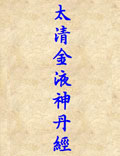 太清金液神丹經